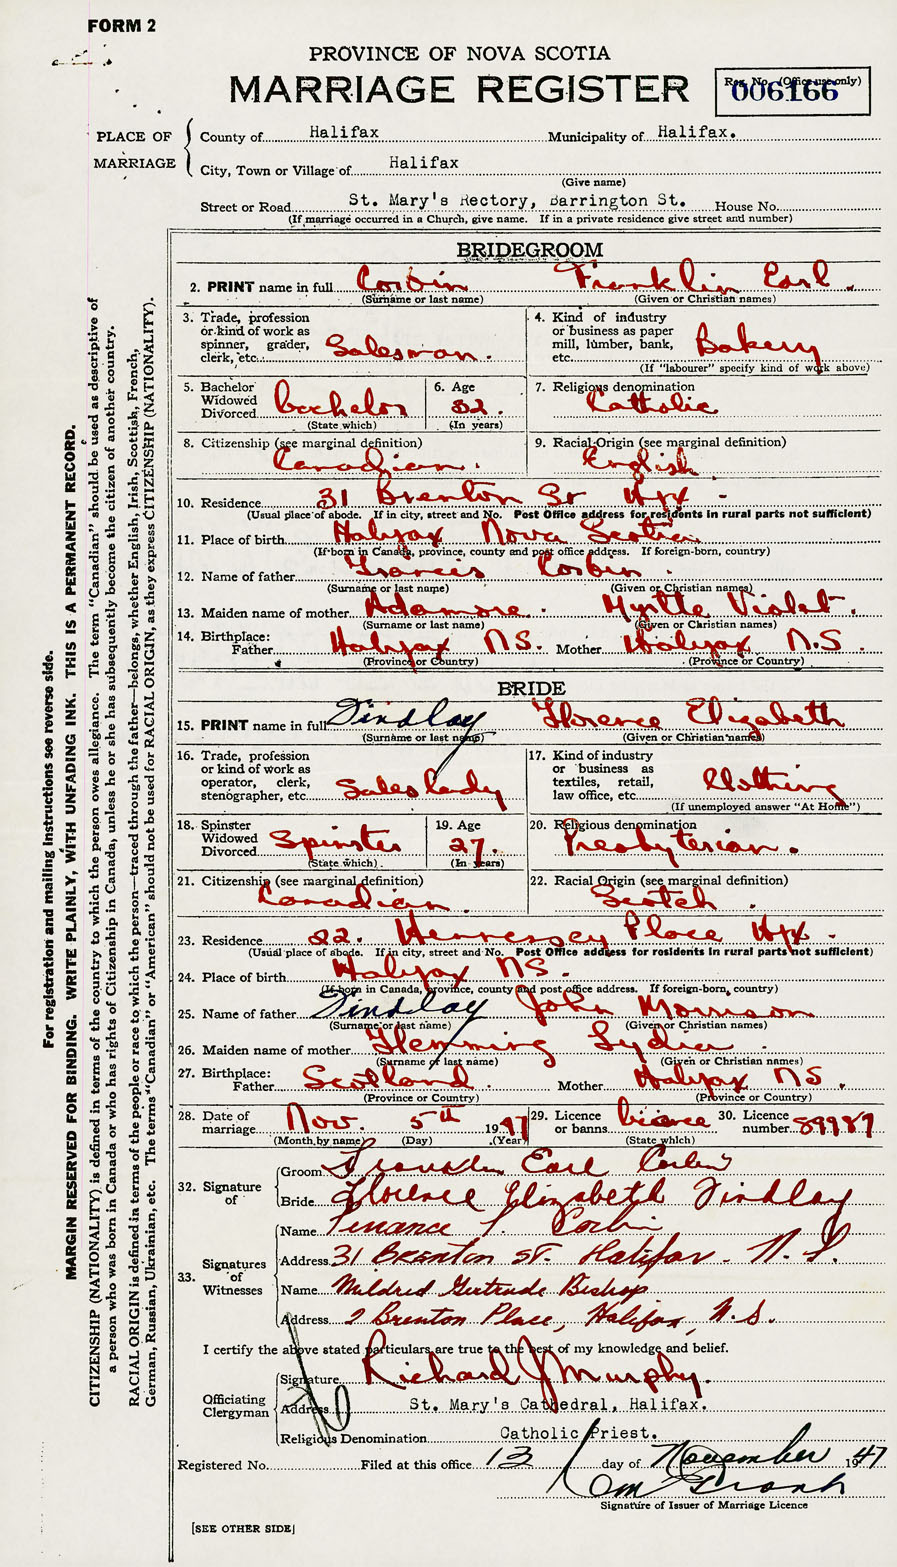 FORM 2
PROVINCE OF NOVA SCOTIA
MARRIAGE REGISTER
Reg. No. (Office use only)
006166
PLACE OF MARRIAGE
County of Halifax Municipality of Halifax.
City, Town or Village of Halifax
(Give name)
Street or Road St. Mary's Rectory, Barrington St. House No.
(If marriage occurred in a Church, give name. If in a private residence give street and number)
BRIDEGROOM
2. PRINT name in full Corbin Franklin Earl.
(Surname or last name) (Given or Christian names)
3. Trade, profession or kind of work as spinner, grader, clerk, etc. Salesman.
4. Kind of industry or business as paper mill, lumber, bank, etc. Bakery
(If "labourer" specify kind of work above)
5. Bachelor Widowed Divorced bachelor
(State which)
6. Age 32.
(In years)
7. Religious denomination Catholic
8. Citizenship (see marginal definition) Canadian.
9. Racial Origin (see marginal definition) English
10. Residence 31 Brenton St Hfx.
(Usual place of abode. If in city, street and No. Post Office address for residents in rural parts not sufficient)
11. Place of birth Halifax Nova Scotia
(If born in Canada, province, county and post office address. If foreign-born, country)
12. Name of father Francis Corbin.
(Surname or last name) (Given or Christian names)
13. Maiden name of mother Adamore. Myrtle Violet.
(Surname or last name) (Given or Christian names)
14. Birthplace: Father Halifax NS. Mother Halifax N.S.
(Province or Country) (Province or Country)
BRIDE
15. PRINT name in full Findlay Florence Elizabeth
(Surname or last name) (Given or Christian names)
16. Trade, profession or kind of work as operator, clerk, stenographer, etc. Saleslady
17. Kind of industry or business as textiles, retail, law office, etc. Clothing
(If unemployed answer "At Home")
18. Spinster Widowed Divorced Spinster
(State which)
19. Age 27.
(In years)
20. Religious denomination Presbyterian.
21. Citizenship (see marginal definition) Canadian.
22. Racial Origin (see marginal definition) Scotch.
23. Residence 22. Hennessey Place Hfx.
(Usual place of abode. If in city, street and No. Post Office address for residents in rural parts not sufficient)
24. Place of birth Halifax NS.
(If born in Canada, province, county and post office address. If foreign-born, country)
25. Name of father Findlay John Morrison
(Surname or last name) (Given or Christian names)
26. Maiden name of mother Flemming Lydia.
(Surname or last name) (Given or Christian names)
27. Birthplace: Father Scotland. Mother Halifax NS.
(Province or Country) (Province or Country)
28. Date of marriage Nov. 5th 1947
(Month by name) (Day) (Year)
29. Licence or banns licence
(State which)
30. Licence number 89987
32. Signature of
Groom Franklin Earl Corbin
Bride Florence Elizabeth Findlay
33. Signatures of Witnesses
Name Corbin
Address 31 Brenton St. Halifax. N.S.
Name Mildred Gertrude Bishop
Address 2 Brenton Place, Halifax, N.S.
I certify the above stated particulars are true to the best of my knowledge and belief.
Officiating Clergyman
Signature Richard J Murphy.
Address St. Mary's Cathedral, Halifax.
Religious Denomination Catholic Priest.
Registered No. Filed at this office 13 day of November 1947
Signature of Issuer of Marriage Licence
[SEE OTHER SIDE]
For registration and mailing instructions see reverse side.
MARGIN RESERVED FOR BINDING. WRITE PLAINLY, WITH UNFADING INK. THIS IS A PERMANENT RECORD.
CITIZENSHIP (NATIONALITY) is defined in terms of the country to which the person owes allegiance. The term "Canadian" should be used as descriptive of
a person who was born in Canada or who has rights of Citizenship in Canada, unless he or she has subsequently become the citizen of another country.
RACIAL ORIGIN is defined in terms of the people or race to which the person—traced through the father—belongs, whether English, Irish, Scottish, French,
German, Russian, Ukrainian, etc. The terms "Canadian" or "American" should not be used for RACIAL ORIGIN, as they express CITIZENSHIP (NATIONALITY).